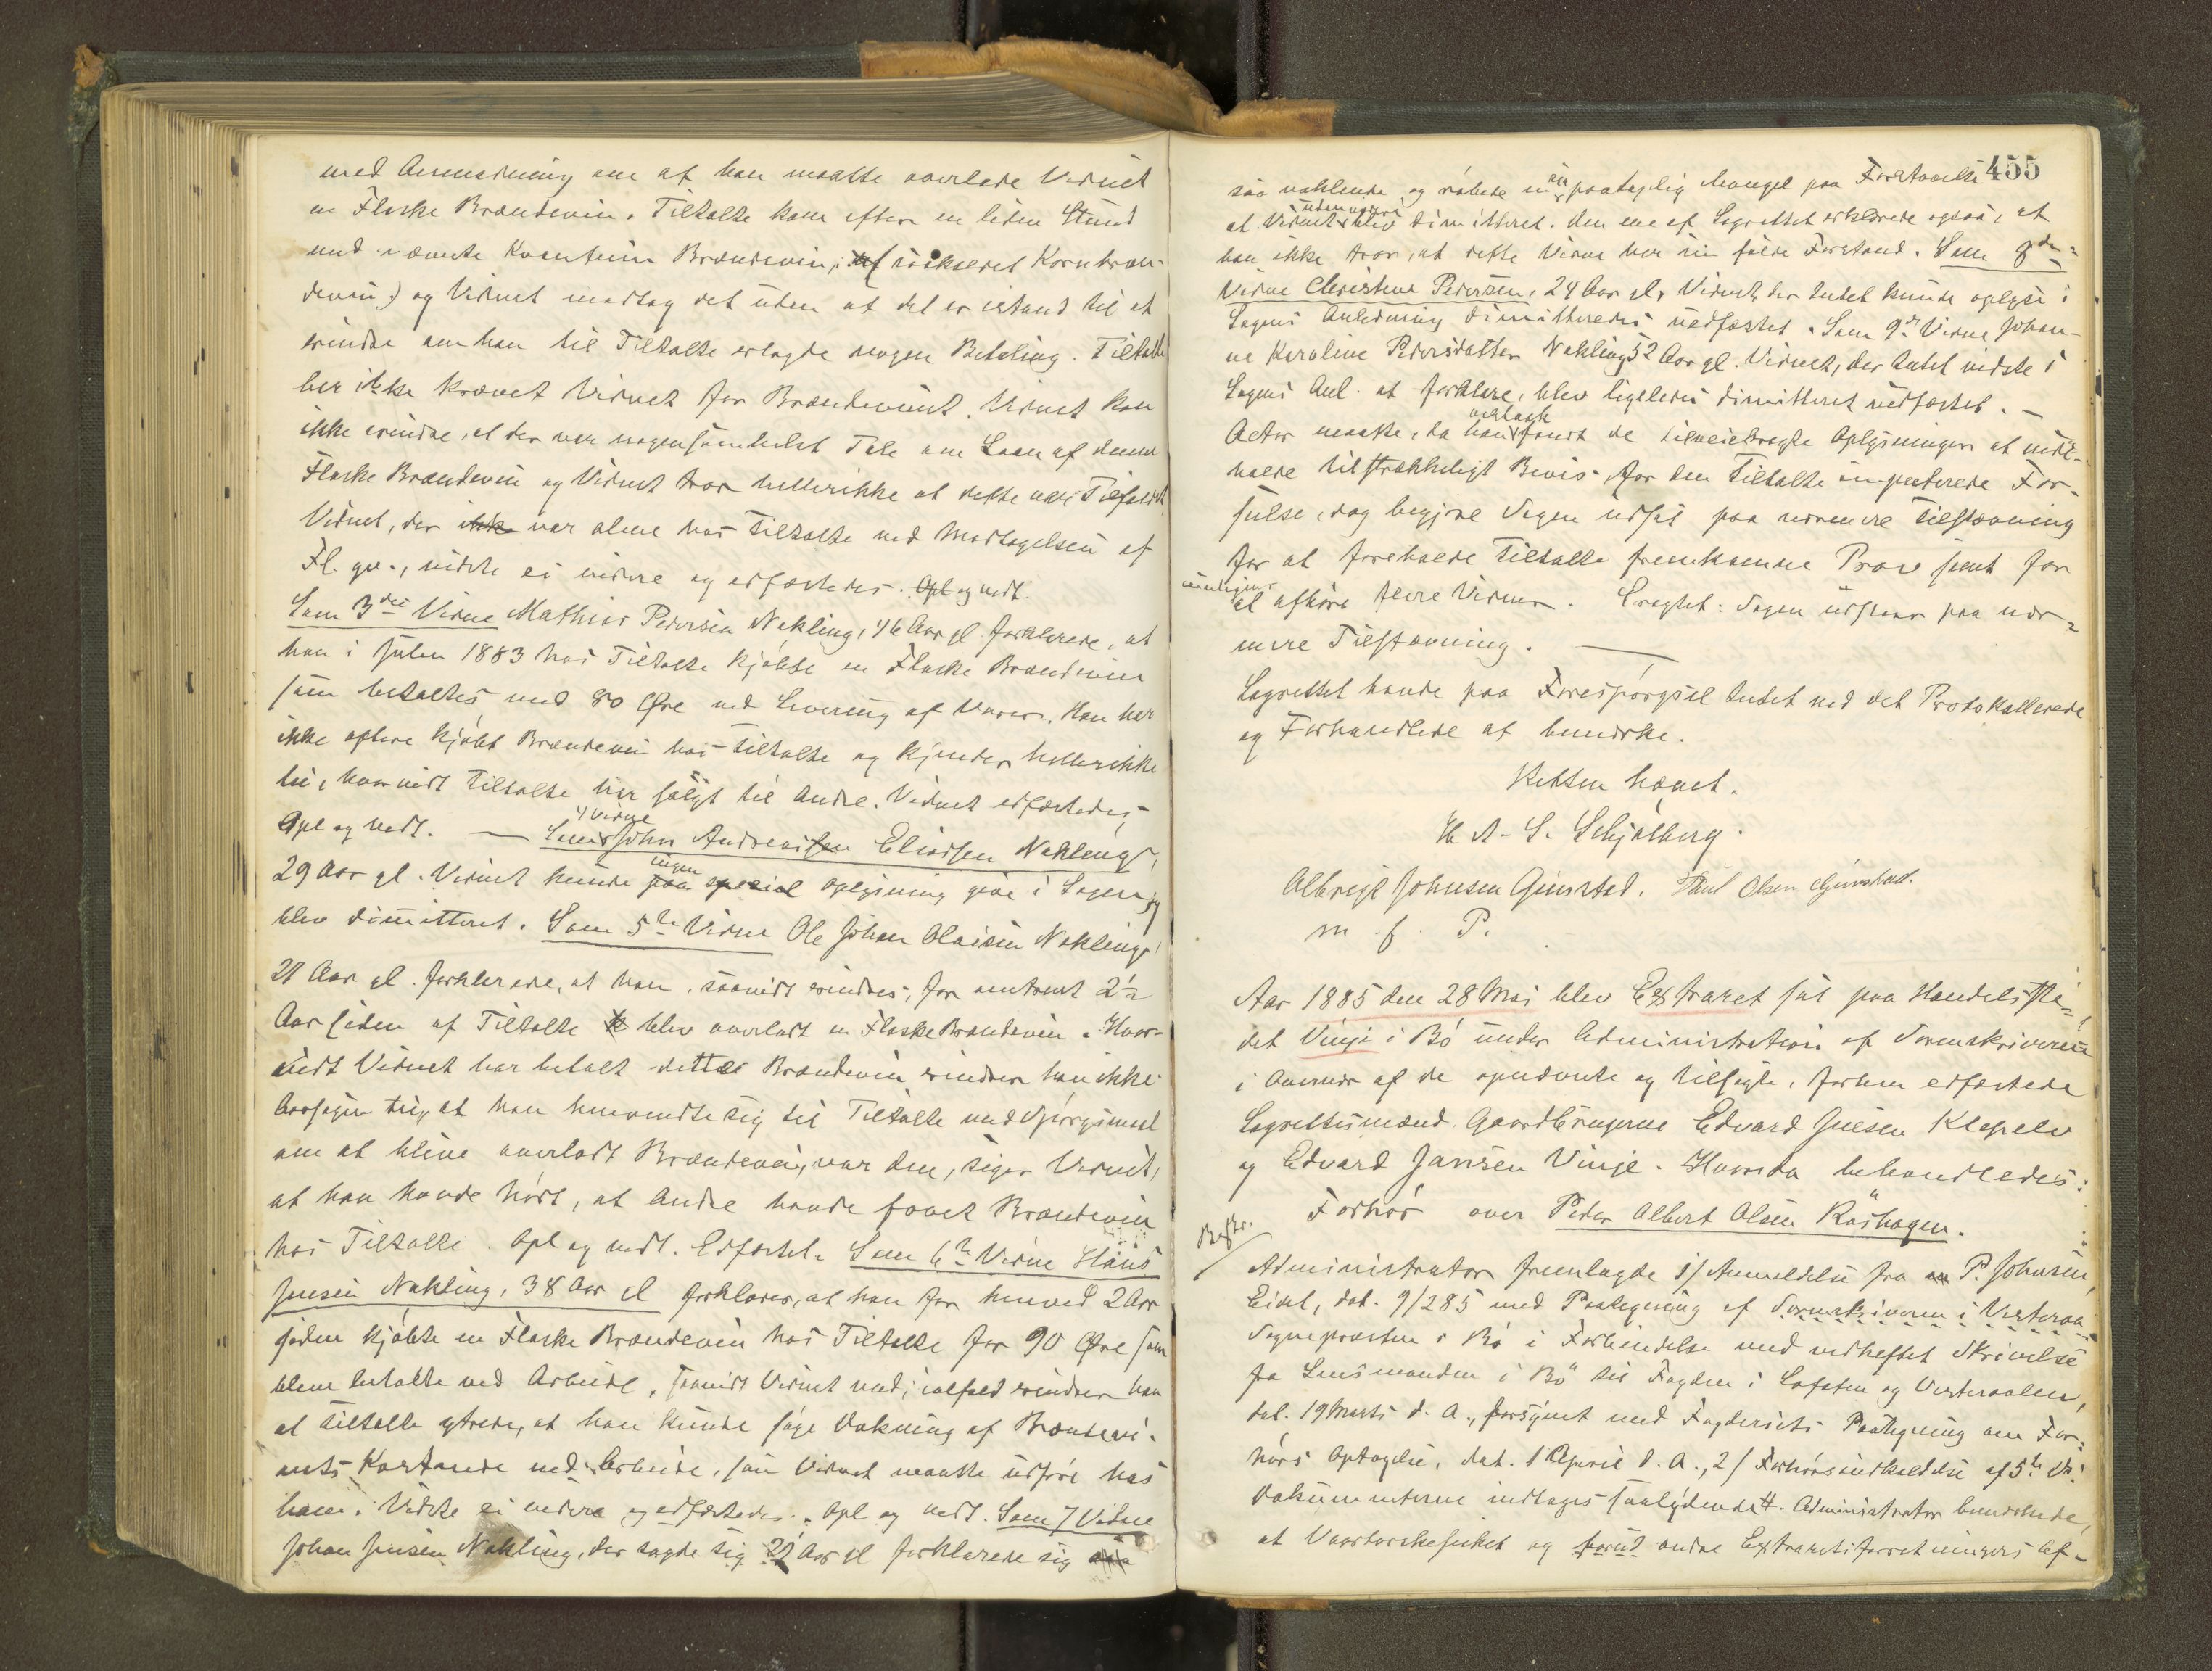 med Anmodning om at han maatte overlade Vidnet
en Flaske Brændevin. Tiltalte kom efter en liden Stund
med nævnte Kvantum Brændevin, (usikseret Kornbræn-
devin) og Vidnet modtog det uden at det er istand til at
erindre om han til Tiltalte erlagde nogen Betaling. Tiltalte
har ikke krævet Vidnet for Brændevinet. Vidnet kan
ikke erindre, at der var nogensomhelst Tale om Laan af denne
Flaske Brændevin og Vidnet tror hellerikke at dette var Tilfældet.
Vidnet, der ikke var alene hos Tiltalte ved Modtagelsen af
Fl. qv., vidste ei videre og edfæstedes. Opl og vedt.
Som 3die Vidne Mathias Pedersen Nykling, 46 Aar gl. forklarede, at
han i Julen 1883 hos Tiltalte kjøbte en Flaske Brændevin
som betaltes med 80 Øre ved Levering af Varer. Han har
ikke oftere kjøbt Brændevin hos Tiltalte og kjender hellerikke
til, hvorvidt Tiltalte har solgt til Andre. Vidnet edfæstedes,
4 Vidne
Opl og vedt. — Som John Andreas Eliassen Nykling,
ingen
29 Aar gl. Vidnet kunde paa special Oplysning give i Sagen og
blev dimitteret. Som 5te Vidne Ole Johan Olaisen Nykling,
21 Aar gl. forklarede, at han, saavidt erindres, for omtrent 2½
Aar siden af Tiltalte blev overladt en Flaske Brændevin. Hvor-
vidt Vidnet har betalt dette Brændevin erindrer han ikke.
Aarsagen til, at han henvendte sig til Tiltalte med Spørgsmaal
om at blive overladt Brændevin, var den, siger Vidnet,
at han havde hørt, at Andre havde faaet Brændevin
hos Tiltalte. Opl og vedt. Edfæstet. Som 6te Vidne Hans
Jensen Nykling, 38 Aar gl forklarer, at han for henved 2 Aar
siden kjøbte en Flaske Brændevin hos Tiltalte for 90 Øre som
bleve betalte ved Arbeide, saavidt Vidnet ved; ialfald erindrer han
at Tiltalte ytrede, at han kunde søge Dækning af Brændevi-
nets Kostende ved Arbeide, som Vidnet maatte udføre hos
ham. Vidste ei videre og edfæstedes. Opl og vedt. Som 7 Vidne
Johan Jensen Nykling, der sagde sig 21 Aar gl forklarede sig
455
saa vaklende og røbede en paatagelig Mangel paa Forstaaelse
udenvidere
at Vidnet blev dimitteret. Den ene af Lagrettet erklærede ogsaa, at
han ikke tror, at dette Vidne har sin fulde Forstand. Som 8de
Vidne Christine Pedersen, 24 Aar gl, Vidnet, der Intet kunde oplyse i
Sagens Anledning dimitteredes uedfæstet. Som 9de Vidne Johan-
ne Karoline Pedersdatter Nykling 52 Aar gl. Vidnet, der Intet vidste i
Sagens Anl. at forklare, blev ligeledes dimitteret uedfæstet. —
Actor maatte, da han fandt de tilveiebragte Oplysninger at inde-
holde tilstrækkeligt Bevis for den Tiltalte imputerede For-
seelse, dog begjære Sagen udsat paa nærmere Tilstævning
for at foreholde Tiltalte fremkomne Prov samt for
muligens
at afhøre flere Vidner. Eragtet: Sagen udstaar paa nær-
mere Tilstævning. —
Lagrettet havde paa Forespørgsel Intet ved det Protokollerede
og Forhandlede at bemærke.
Retten hævet.
H. A. S. Schjølberg.
Albregt Johnsen Gimstad. Poul Olsen Gimstad.
m. f. P.
Aar 1885 den 28 Mai blev Extraret sat paa Handelsste-
det Vinje i Bø under Administration af Sorenskriveren
i Overvær af de opnævnte og tilsagte, forhen edfæstede
Lagrettesmænd Gaardbrugerne Edvard Jensen Klepelv
og Edvard Jansen Vinje. Hvorda behandledes:
Forhør over Peder Albert Olsen Røshagen.
Administrator fremlagde 1/ Anmeldelse fra P. Johnsen,
Eidet, dat. 9/2 85 med Paategning af Sorenskriveren i Vesteraalen
Sognepræsten i Bø i Forbindelse med vedheftet Skrivelse
fra Lensmanden i Bø til Fogden i Lofoten og Vesteraalen,
dat. 19 Marts d. A., forsynet med Fogderiets Paategning om For-
hørs Optagelse, dat. 1 April d. A., 2/ Forhørsindkaldelse af 5te ds.
Dokumenterne indtages saalydende #. Administrator bemærkede,
at Vaartorskefisket og forud andre Extraretsforretningers Af-